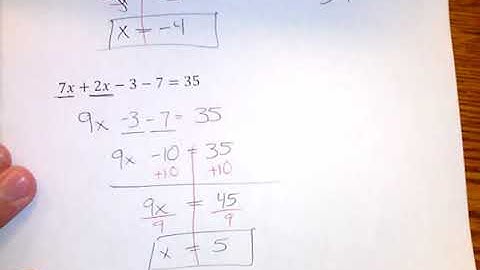 x = -4
7x + 2x − 3 − 7 = 35
9x -3 - 7 = 35
9x -10 = 35
+10 +10
9x = 45
9 9
x = 5